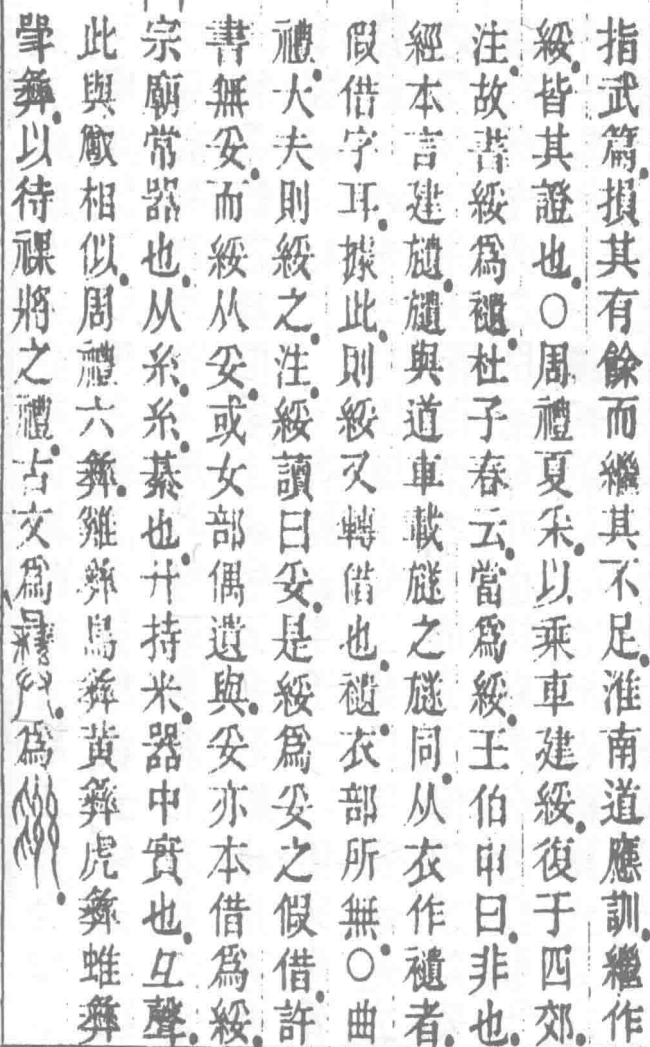 指武篇。損其有餘而繼其不足。淮南道應訓。繼作
綏。皆其證也。○周禮夏采。以乘車建綏。復于四郊。
注。故書綏爲䙡。杜子春云。當爲綏。王伯申曰。非也。
經本言建旞。旞與道車載旞之旞同。从衣作䙡者。
假借字耳。據此。則綏又轉借也。䙡。衣部所無。○曲
禮。大夫則綏之。注。綏讀曰妥。是綏爲妥之假借。許
書無妥。而綏从妥。或女部偶遺與。妥亦本借爲綏。
宗廟常器也。从糸。糸。綦也。廾持米。器中實也。彑聲。
此與爵相似。周禮六彝。雞彝鳥彝黃彝虎彝蜼彝
斝彝。以待祼將之禮。古文爲。爲。